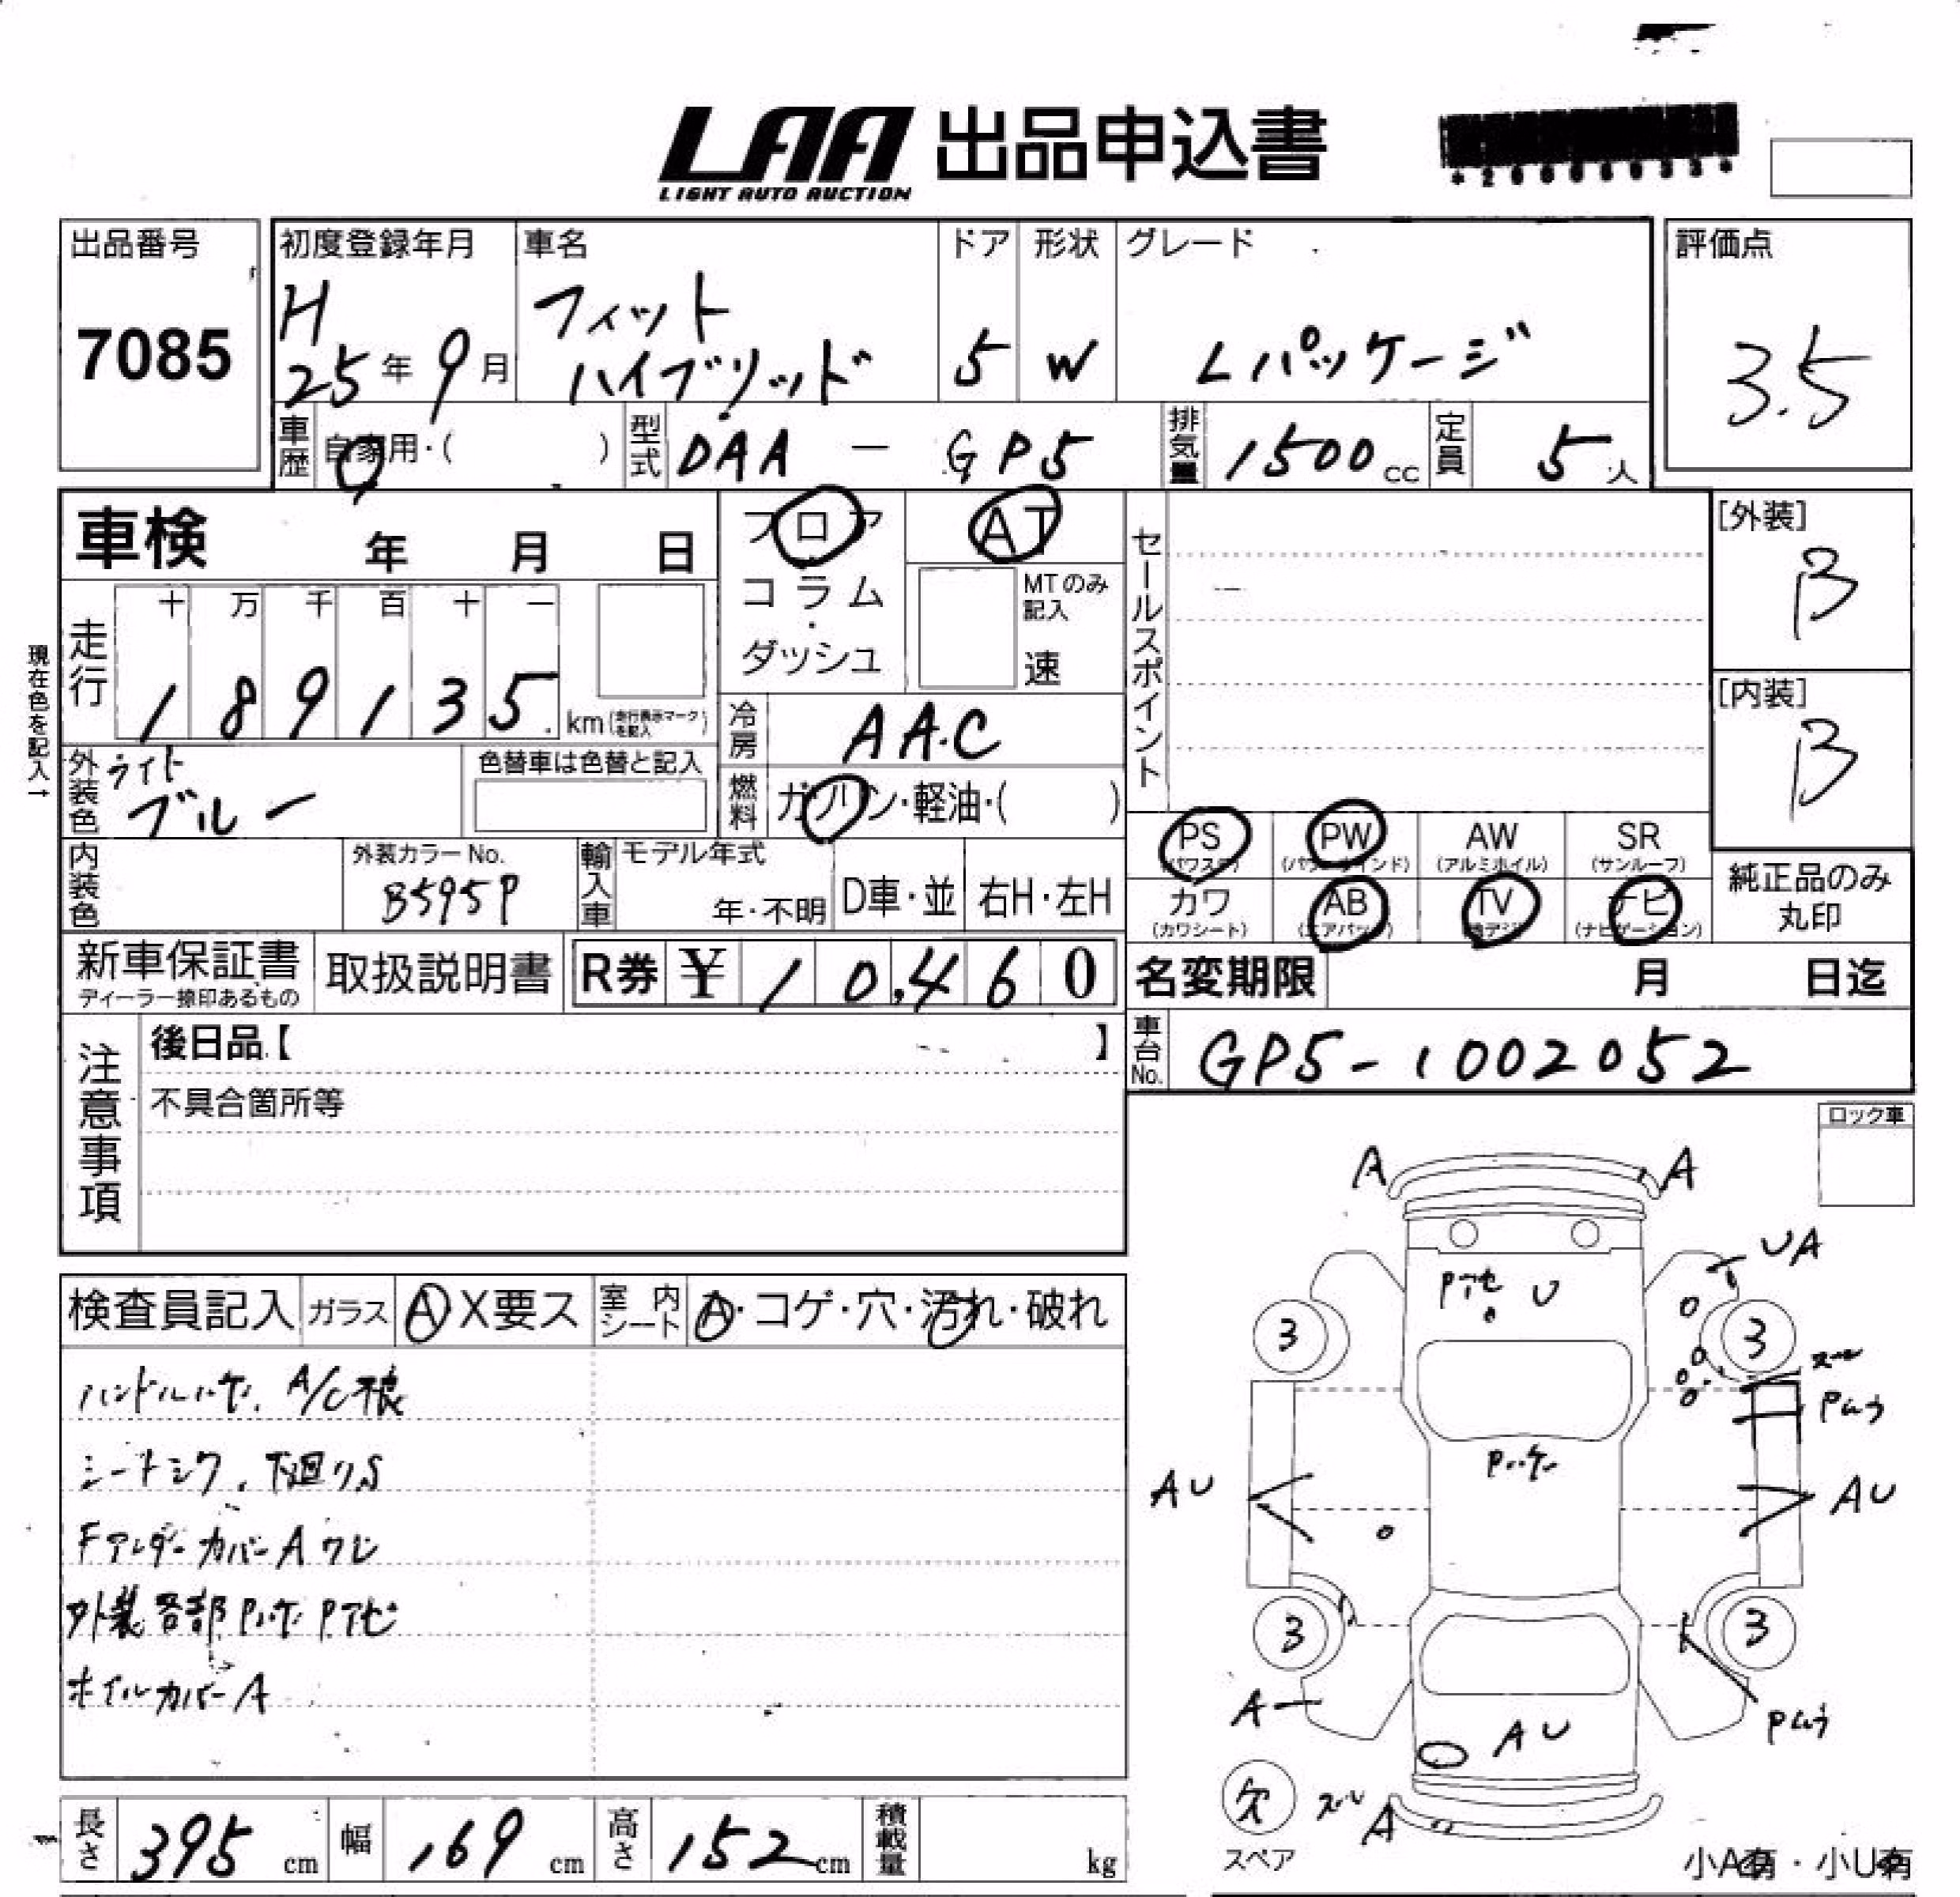 LAA 出品申込書
LIGHT AUTO AUCTION
出品番号
7085
初度登録年月
H
25年 9月
車名
フィット
ハイブリッド
ドア
5
形状
W
グレード
Lパッケージ
評価点
3.5
車歴 自家用・( )
型式 DAA - GP5
排気量 1500cc
定員 5人
車検 年 月 日
フロア
・
コラム
・
ダッシュ
AT
MTのみ記入
速
セールスポイント
[外装]
B
[内装]
B
現在色を記入→
走行
十 万 千 百 十 一
1 8 9 1 3 5. km (走行表示マークを記入)
冷房 AA.C
外装色 ライト
ブルー
色替車は色替と記入
燃料 ガソリン・軽油・( )
PS (パワステ)
PW (パワーウインド)
AW (アルミホイル)
SR (サンルーフ)
カワ (カワシート)
AB (エアバック)
TV (地デジ)
ナビ (ナビゲーション)
純正品のみ
丸印
内装色
外装カラーNo.
B595P
輸入車 モデル年式
年・不明
D車・並
右H・左H
新車保証書
ディーラー捺印あるもの
取扱説明書
R券 ¥ 1 0,4 6 0
名変期限 月 日迄
車台No. GP5-1002052
注意事項
後日品【 】
不具合箇所等
ロック車
検査員記入 ガラス A X要ス 室内シート A・コゲ・穴・汚れ・破れ
ハンドルハゲ. A/C不良
シートシワ. 下廻りS
Fアンダーカバー A ワレ
外装各部 Pハゲ Pアセ
ホイルカバー A
A A
UA
Pアセ U
3 3
ズレ
Pムラ
Pハゲ
AU AU
3 3
A
Pムラ
AU
欠
スペア
ズレ A
小A有・小U有
長さ 395 cm 幅 169 cm 高さ 152 cm 積載量 kg